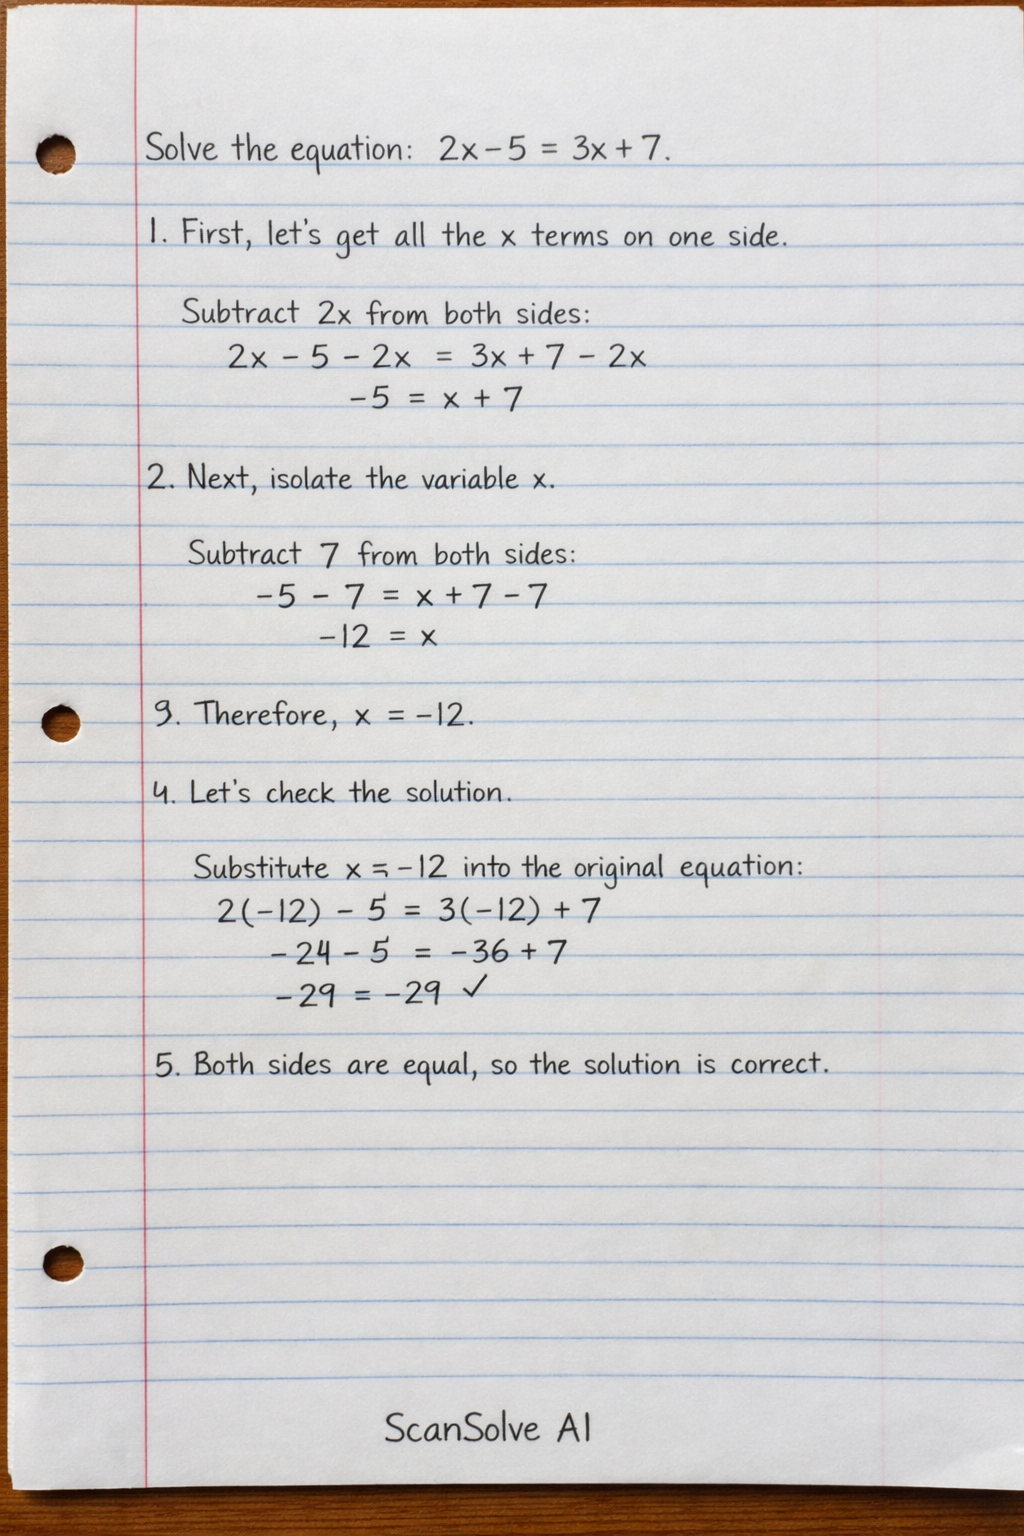 Solve the equation: 2x - 5 = 3x + 7.
1. First, let's get all the x terms on one side.
Subtract 2x from both sides:
2x - 5 - 2x = 3x + 7 - 2x
-5 = x + 7
2. Next, isolate the variable x.
Subtract 7 from both sides:
-5 - 7 = x + 7 - 7
-12 = x
9. Therefore, x = -12.
4. Let's check the solution.
Substitute x = -12 into the original equation:
2(-12) - 5 = 3(-12) + 7
-24 - 5 = -36 + 7
-29 = -29 ✓
5. Both sides are equal, so the solution is correct.
ScanSolve AI